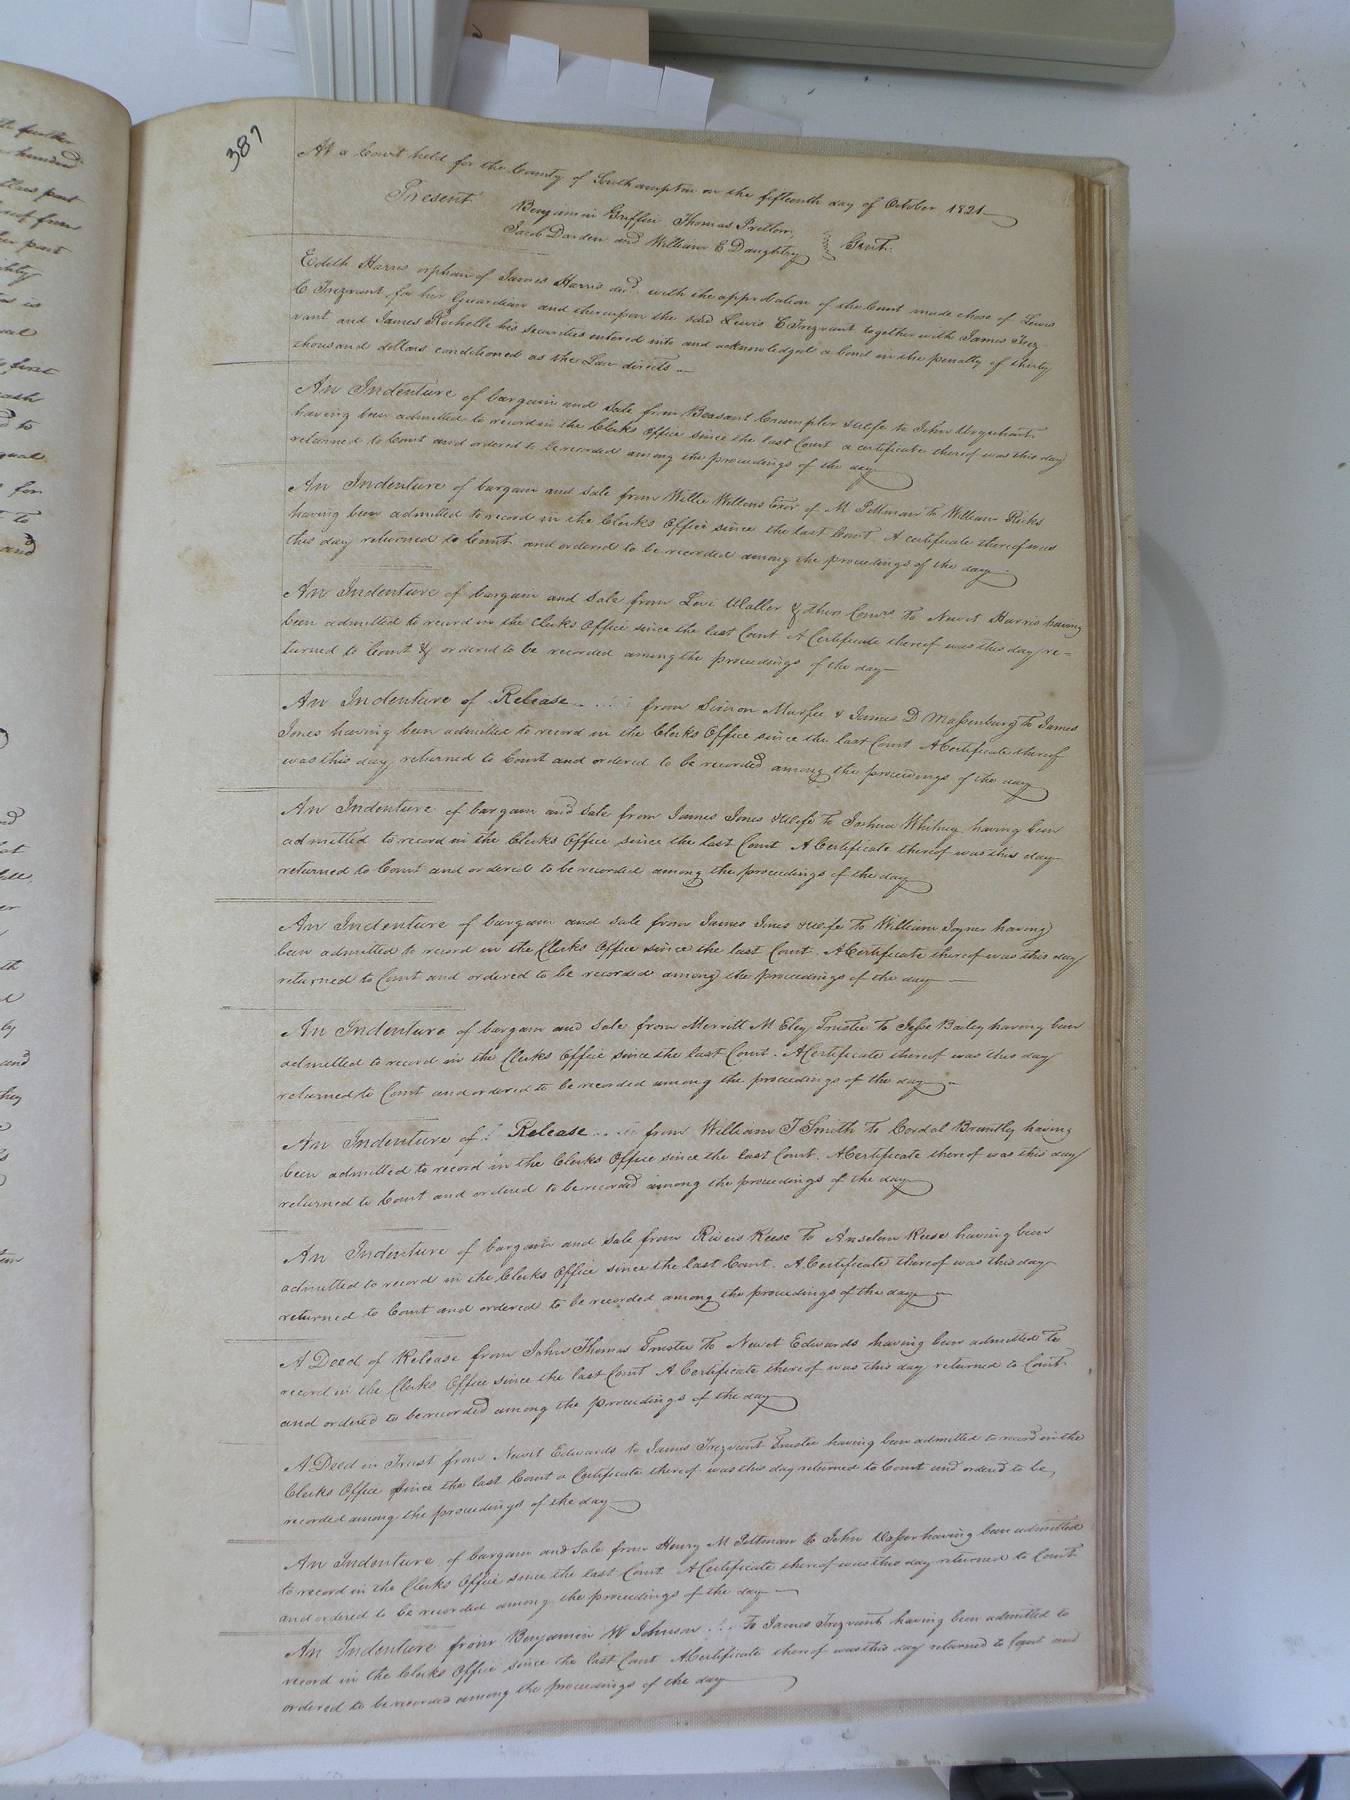 387
At a Court held for the County of Southampton on the fifteenth day of October 1821
Present Benjamin Griffin Thomas Pretlow,
Jacob Darden and William E Daughtry } Gent.
Edith Harris orphan of James Harris decd. with the approbation of the Court made chose of Lewis
C Trezvant for her Guardian and thereupon the said Lewis C Trezvant together with James Trez-
vant and James Rochelle his securities entered into and acknowledged a bond in the penalty of thirty
thousand dollars conditioned as the Law directs
An Indenture of bargain and sale from Beasant Crumpler & wife to John Urquhart
having been admitted to record in the Clerks Office since the last Court a certificate thereof was this day
returned to Court and ordered to be recorded among the proceedings of the day
An Indenture of bargain and sale from Willie Exor of M Pittman to William Ricks
having been admitted to record in the Clerks Office since the last Court. A certificate thereof was
this day returned to Court and ordered to be recorded among the proceedings of the day.
An Indenture of bargain and sale from Levi Waller & others Comrs. To Newit Harris having
been admitted to record in the Clerks Office since the last Court A Certificate thereof was this day re-
turned to Court & ordered to be recorded among the proceedings of the day
An Indenture of Release from Simon Murfee & James D Massenburg To James
Jones having been admitted to record in the Clerks Office since the last Court A Certificate thereof
was this day returned to Court and ordered to be recorded among the proceedings of the day
An Indenture of bargain and sale from James Jones & wife To Joshua Whitney having been
admitted to record in the Clerks Office since the last Court A Certificate thereof was this day
returned to Court and ordered to be recorded among the proceedings of the day
An Indenture of bargain and sale from James Jones & wife To William Joyner having
been admitted to record in the Clerks Office since the last Court. A Certificate thereof was this day
returned to Court and ordered to be recorded among the proceedings of the day
An Indenture of bargain and sale from Merritt M Eley Trustee To Jesse Bailey having been
admitted to record in the Clerks Office since the last Court. A Certificate thereof was this day
returned to Court and ordered to be recorded among the proceedings of the day
An Indenture of Release from William T Smith To Cordal Brantley having
been admitted to record in the Clerks Office since the last Court. A Certificate thereof was this day
returned to Court and ordered to be recorded among the proceedings of the day
An Indenture of bargain and sale from Rivers Reese To Anselm Reese having been
admitted to record in the Clerks Office since the last Court. A Certificate thereof was this day
returned to Court and ordered to be recorded among the proceedings of the day
A Deed of Release from John Thomas Trustee To Newit Edwards having been admitted to
record in the Clerks Office since the last Court A Certificate thereof was this day returned to Court
and ordered to be recorded among the proceedings of the day
A Deed in Trust from Newit Edwards to James Trezvant Trustee having been admitted to record in the
Clerks Office since the last Court a Certificate thereof was this day returned to Court and ordered to be
recorded among the proceedings of the day
An Indenture of bargain and sale from Henry M Pittman to John having been admitted
to record in the Clerks Office since the last Court A Certificate thereof was this day returned to Court
and ordered to be recorded among the proceedings of the day
An Indenture from Benjamin W Johnson To James Trezvant having been admitted to
record in the Clerks Office since the last Court A Certificate thereof was this day returned to Court and
ordered to be recorded among the proceedings of the day